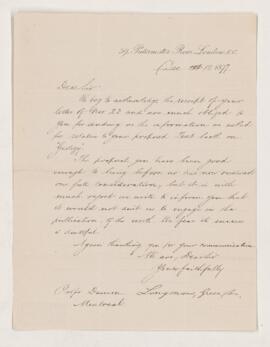 39, Paternoster Row, London, E.C.
Dec 12 1877
Dear Sir
We beg to acknowledge the receipt of your
letter of Nov 22 and are much obliged to
you for sending us the information we asked
for relative to your proposed Text book on
Geology.
The proposal you have been good
enough to lay before us has now received
our full consideration, but it is with
much regret we write to inform you that
it would not suit us to engage in the
publication of the work. We fear its success
is doubtful.
Again thanking you for your communication
We are, Dear Sir
Yours faithfully
Longmans, Green, & Co.
Dawson
Montreal